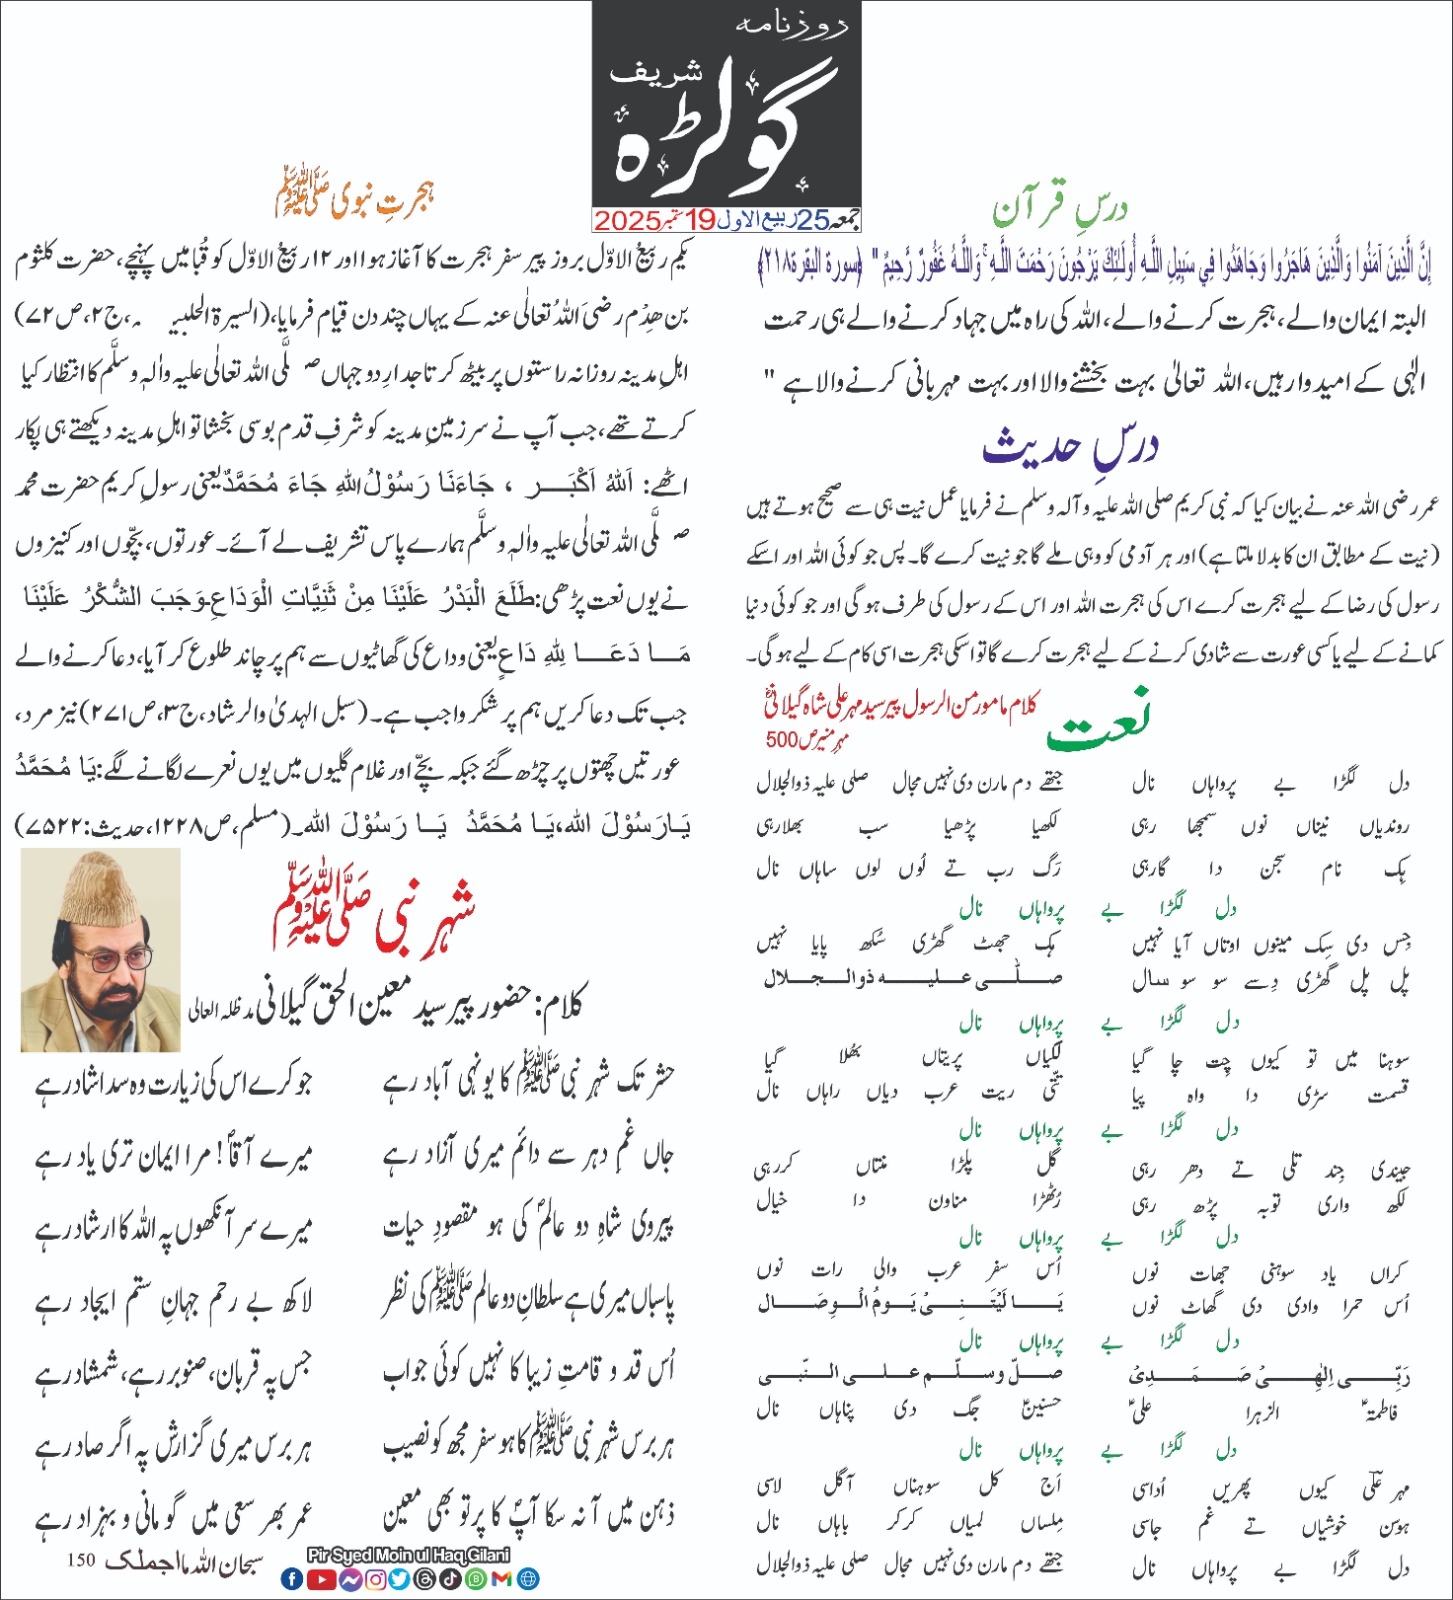 روزنامہ
گولڑہ شریف
جمعہ 25 ربیع الاول 19 ستمبر 2025
درسِ قرآن
إِنَّ الَّذِينَ آمَنُوا وَالَّذِينَ هَاجَرُوا وَجَاهَدُوا فِي سَبِيلِ اللَّهِ أُولَئِكَ يَرْجُونَ رَحْمَتَ اللَّهِ ۚ وَاللَّهُ غَفُورٌ رَّحِيمٌ " (سورة البقرة ۲۱۸)
البتہ ایمان والے، ہجرت کرنے والے، اللہ کی راہ میں جہاد کرنے والے ہی رحمت
الٰہی کے امیدوار ہیں، اللہ تعالیٰ بہت بخشنے والا اور بہت مہربانی کرنے والا ہے "
درسِ حدیث
عمر رضی اللہ عنہ نے بیان کیا کہ نبی کریم صلی اللہ علیہ و آلہ وسلم نے فرمایا عمل نیت ہی سے صحیح ہوتے ہیں
(نیت کے مطابق ان کا بدلا ملتا ہے) اور ہر آدمی کو وہی ملے گا جو نیت کرے گا۔ پس جو کوئی اللہ اور اسکے
رسول کی رضا کے لیے ہجرت کرے اس کی ہجرت اللہ اور اس کے رسول کی طرف ہوگی اور جو کوئی دنیا
کمانے کے لیے یا کسی عورت سے شادی کرنے کے لیے ہجرت کرے گا تو اسکی ہجرت اسی کام کے لیے ہوگی۔
نعت
کلام مامور من الرسول پیر سید مہر علی شاہ گیلانیؒ
مہر منیر ص 500
دل لگڑا بے پرواہاں نال جتھے دم مارن دی نہیں مجال صلی علیہ ذوالجلال
روندیاں نیناں نوں سمجھا رہی لکھیا پڑھیا سب بھلا رہی
ہِک نام سجن دا گا رہی رَگ رب تے لُوں لوں ساہاں نال
دل لگڑا بے پرواہاں نال
جِس دی سِک مینوں اوتاں آیا نہیں ہِک جھٹ گھڑی سُکھ پایا نہیں
پل پل گھڑی دِسے سو سو سال صلّی علیہ ذوالجلال
دل لگڑا بے پرواہاں نال
سوہنا میں تو کیوں چِت چا گیا لگیاں پریتاں بھُلا گیا
قسمت سڑی دا واہ پیا تتّی ریت عرب دیاں راہاں نال
دل لگڑا بے پرواہاں نال
جیندی جِند تلی تے دھر رہی گل پلڑا منتاں کر رہی
لکھ واری توبہ پڑھ رہی رُٹھڑا مناون دا خیال
دل لگڑا بے پرواہاں نال
کراں یاد سوہنی جھات نوں اُس سفر عرب والی رات نوں
اُس حمرا وادی دی گھاٹ نوں یَا لَیْتَنِیْ یَومُ الْوِصَال
دل لگڑا بے پرواہاں نال
رَبِّی اِلٰهِیْ صَمَدِیْ صلّ وسلّم علی النّبی
فاطمۃؑ الزہرا علیؑ حسنینؑ جگ دی پناہاں نال
دل لگڑا بے پرواہاں نال
مہر علیؒ کیوں پھریں اُداسی اَج کل سوہناں آگل لاسی
ہوسن خوشیاں تے غم جاسی مِلساں لمیاں کرکر باہاں نال
دل لگڑا بے پرواہاں نال جتھے دم مارن دی نہیں مجال صلی علیہ ذوالجلال
ہجرتِ نبوی ﷺ
یکم ربیعُ الاوّل بروز پیر سفرِ ہجرت کا آغاز ہوا اور ۱۲ ربیعُ الاوّل کو قُبا میں پہنچے، حضرت کلثوم
بن ھِدْم رضیَ اللہُ تعالٰی عنہ کے یہاں چند دن قیام فرمایا، (السیرۃ الحلبیہ، ج۲، ص۷۲)
اہلِ مدینہ روزانہ راستوں پر بیٹھ کر تاجدارِ دو جہاں صلَّی اللہ تعالٰی علیہ واٰلہٖ وسلَّم کا انتظار کیا
کرتے تھے، جب آپ نے سرزمینِ مدینہ کو شرفِ قدم بوسی بخشا تو اہلِ مدینہ دیکھتے ہی پکار
اٹھے: اَللّٰهُ اَکْبَر ، جَاءَنَا رَسُوْلُ اللهِ جَاءَ مُحَمَّدٌ یعنی رسولِ کریم حضرت محمد
صلَّی اللہ تعالٰی علیہ واٰلہٖ وسلَّم ہمارے پاس تشریف لے آئے۔ عورتوں، بچّوں اور کنیزوں
نے یوں نعت پڑھی: طَلَعَ الْبَدْرُ عَلَیْنَا مِنْ ثَنِیَّاتِ الْوَدَاعِ۔وَجَبَ الشُّکْرُ عَلَیْنَا
مَا دَعَا لِلّٰهِ دَاعٍ یعنی وداع کی گھاٹیوں سے ہم پر چاند طلوع کر آیا، دعا کرنے والے
جب تک دعا کریں ہم پر شکر واجب ہے۔ (سبل الہدیٰ والرشاد، ج۳، ص۲۷۱) نیز مرد،
عورتیں چھتوں پر چڑھ گئے جبکہ بچّے اور غلام گلیوں میں یوں نعرے لگانے لگے: یَا مُحَمَّدُ
یَارَسُوْلَ الله، یَا مُحَمَّدُ یَا رَسُوْلَ الله۔ (مسلم، ص۱۲۲۸، حدیث: ۷۵۲۲)
شہرِ نبی ﷺ
کلام: حضور پیر سید معین الحق گیلانی مدظلہ العالی
حشر تک شہرِ نبیﷺ کا یونہی آباد رہے جو کرے اس کی زیارت وہ سدا شاد رہے
جاں غمِ دہر سے دائم میری آزاد رہے میرے آقاؐ! مرا ایمان تری یاد رہے
پیروی شاہِ دو عالمؐ کی ہو مقصودِ حیات میرے سر آنکھوں پہ اللہ کا ارشاد رہے
پاسباں میری ہے سلطانِ دو عالم ﷺ کی نظر لاکھ بے رحم جہانِ ستم ایجاد رہے
اُس قد و قامتِ زیبا کا نہیں کوئی جواب جس پہ قربان، صنوبر رہے، شمشاد رہے
ہر برس شہرِ نبیﷺ کا ہو سفر مجھ کو نصیب ہر برس میری گزارش پہ اگر صاد رہے
ذہن میں آ نہ سکا آپؐ کا پرتو بھی معین عمر بھر سعی میں گو مانی و بہزاد رہے
Pir Syed Moin ul Haq Gilani
سبحان اللہ ما اجملک 150